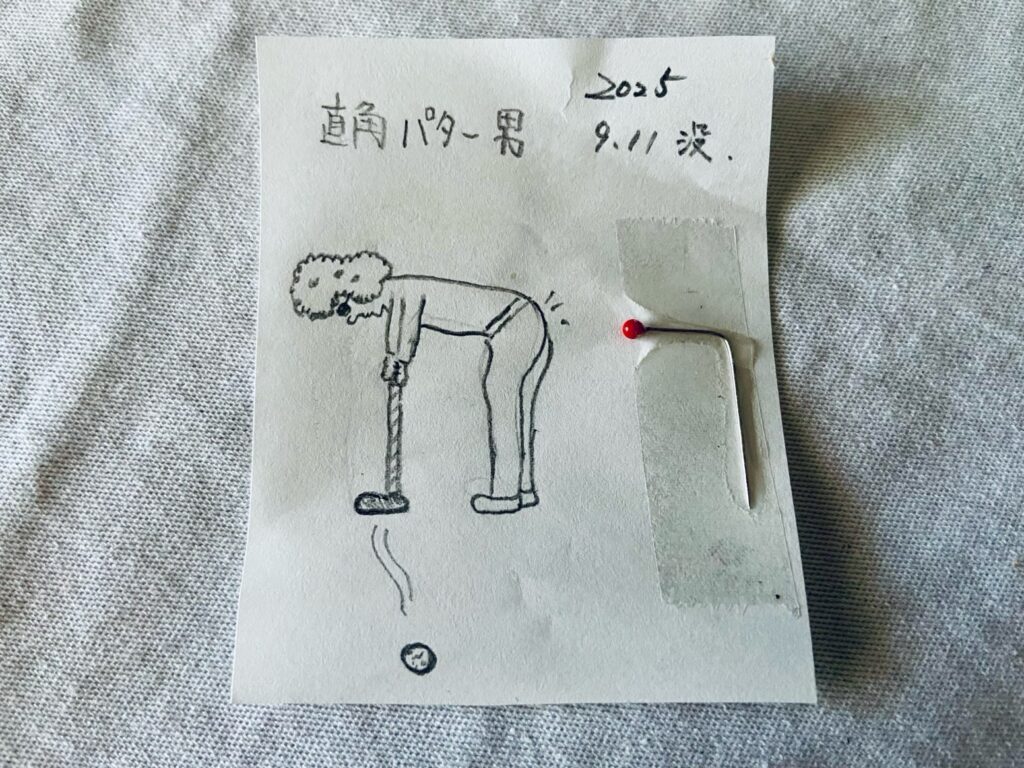 直角パター男
2025
9.11 没.